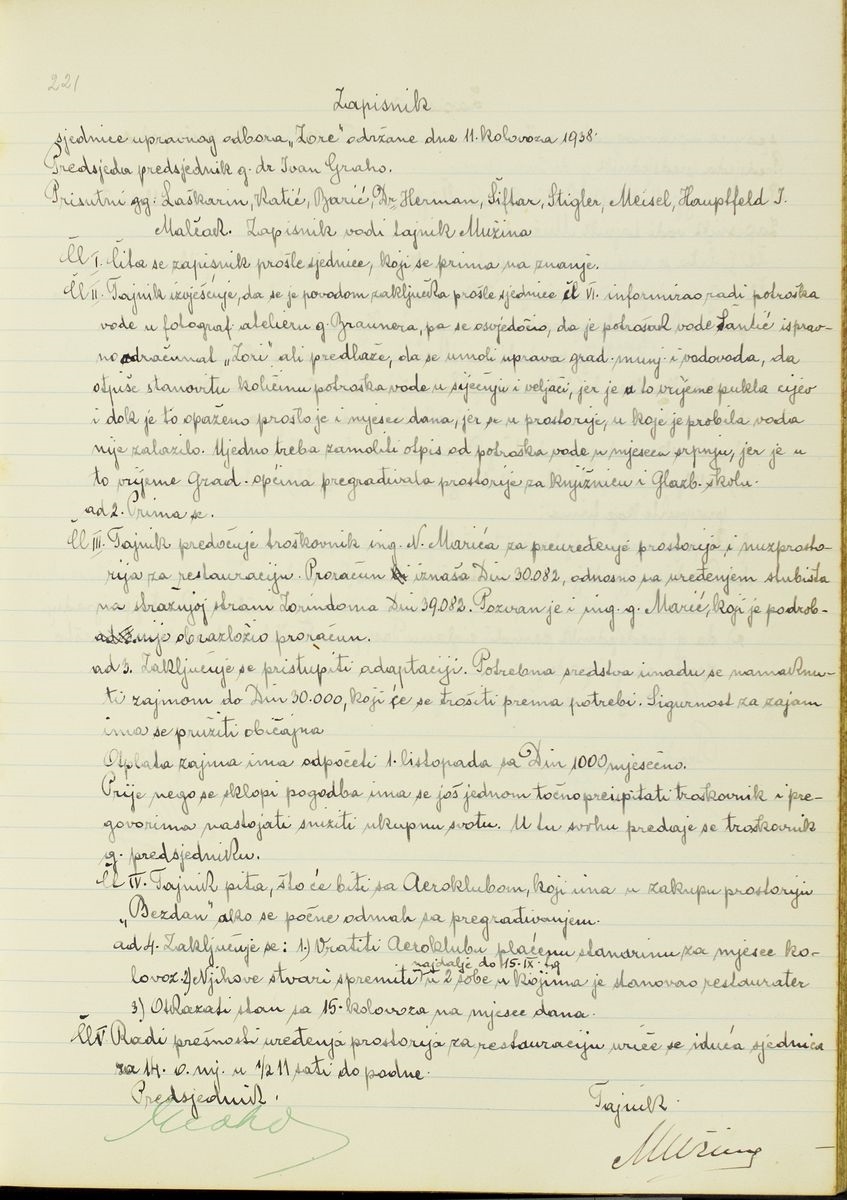 221
Zapisnik
sjednice upravnog odbora „Zore" održane dne 11. kolovoza 1938.
Predsjeda predsjednik g. dr Ivan Graho.
Prisutni gg: Laškarin, Katić, Barić, Dr Herman, Šiftar, Stigler, Meisel, Hauptfeld I.
Malčak. Zapisnik vodi tajnik Mužina
Čl I. Čita se zapisnik prošle sjednice, koji se prima na znanje.
Čl II. Tajnik izvješćuje, da se je povodom zaključka prošle sjednice čl VI. informirao radi potroška
vode u fotograf. atelieru g. Braunera, pa se osvjedočio, da je potrošak vode Šantić isprav-
no odračunat „Zori" ali predlaže, da se umoli uprava grad. munj. i vodovoda, da
otpiše stanovitu količinu potroška vode u siječnju i veljači, jer je u to vrijeme pukla cijev
i dok je to opaženo prošlo je i mjesec dana, jer se u prostorije, u koje je probila voda
nije zalazilo. Ujedno treba zamoliti otpis od potroška vode u mjesecu srpnju, jer je u
to vrijeme Grad. općina pregrađivala prostorije za knjižnicu i Glazb. školu.
ad 2. Prima se.
Čl III. Tajnik predočuje troškovnik ing. N. Marića za preuređenje prostorija i nuzprosto-
rija za restauraciju. Proračun iznaša Din 30.082, odnosno sa uređenjem stubišta
na stražnjoj strani Zorindoma Din 39.082. Pozvan je i ing. g. Marić, koji je podrob-
nije obrazložio proračun.
ad 3. Zaključuje se pristupiti adaptaciji. Potrebna sredstva imadu se namaknu-
ti zajmom do Din 30.000, koji će se trošiti prema potrebi. Sigurnost za zajam
ima se pružiti običajna
Otplata zajma ima odpočeti 1. listopada sa Din 1000 mjesečno.
Prije nego se sklopi pogodba ima se još jednom točno preispitati troškovnik i pre-
govorima nastojati sniziti ukupnu svotu. U tu svrhu predaje se troškovnik
g. predsjedniku.
Čl IV. Tajnik pita, što će biti sa Aeroklubom, koji ima u zakupu prostoriju
„Bezdan" ako se počne odmah sa pregrađivanjem.
ad 4. Zaključuje se: 1.) Vratiti Aeroklubu plaćenu stanarinu za mjesec ko-
lovoz 2) Njihove stvari spremiti najdalje do 15. IX. tg u 2 sobe u kojima je stanovao restaurater
3) Otkazati stan sa 15. kolovoza na mjesec dana.
Čl V Radi prešnosti uređenja prostorija za restauraciju uriče se iduća sjednica
za 14. o. mj. u 1/2 11 sati do podne.
Predsjednik: Tajnik.
Graho Mužina